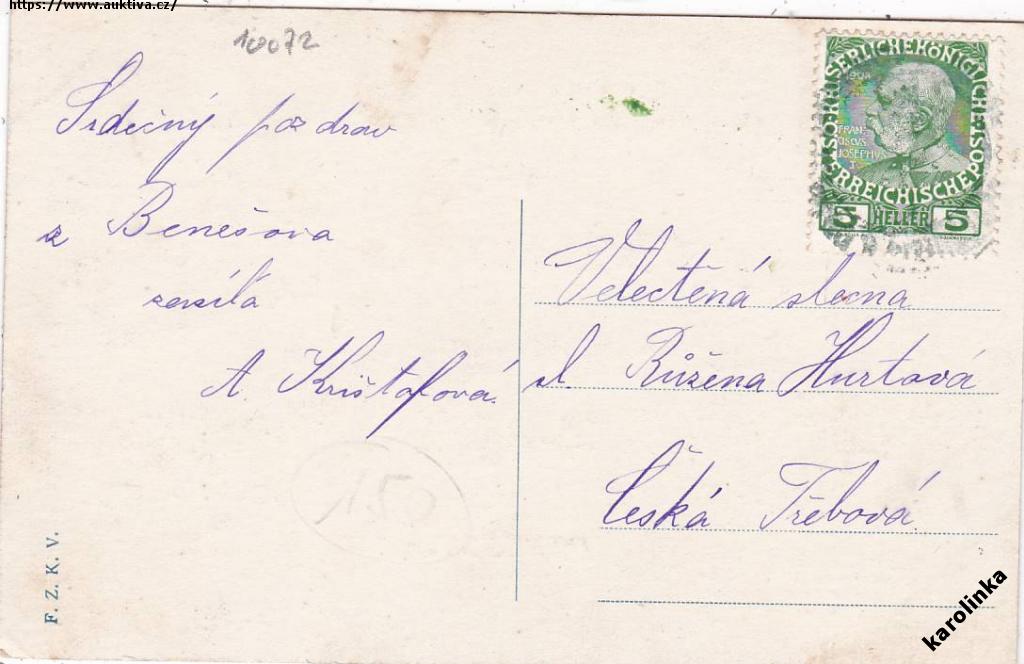 https://www.auktiva.cz/
10072
Srdečný pozdrav
z Benešova
zasílá
A. Krištofová
Velectěná slečna
sl. Růžena Hurtová
Česká Třebová
F. Z. K. V.
KAISERLICHE KÖNIGLICHE POST
ÖSTERREICHISCHE
1908
FRAN
CISCVS
JOSEPHVS
I
5 HELLER 5
karolinka